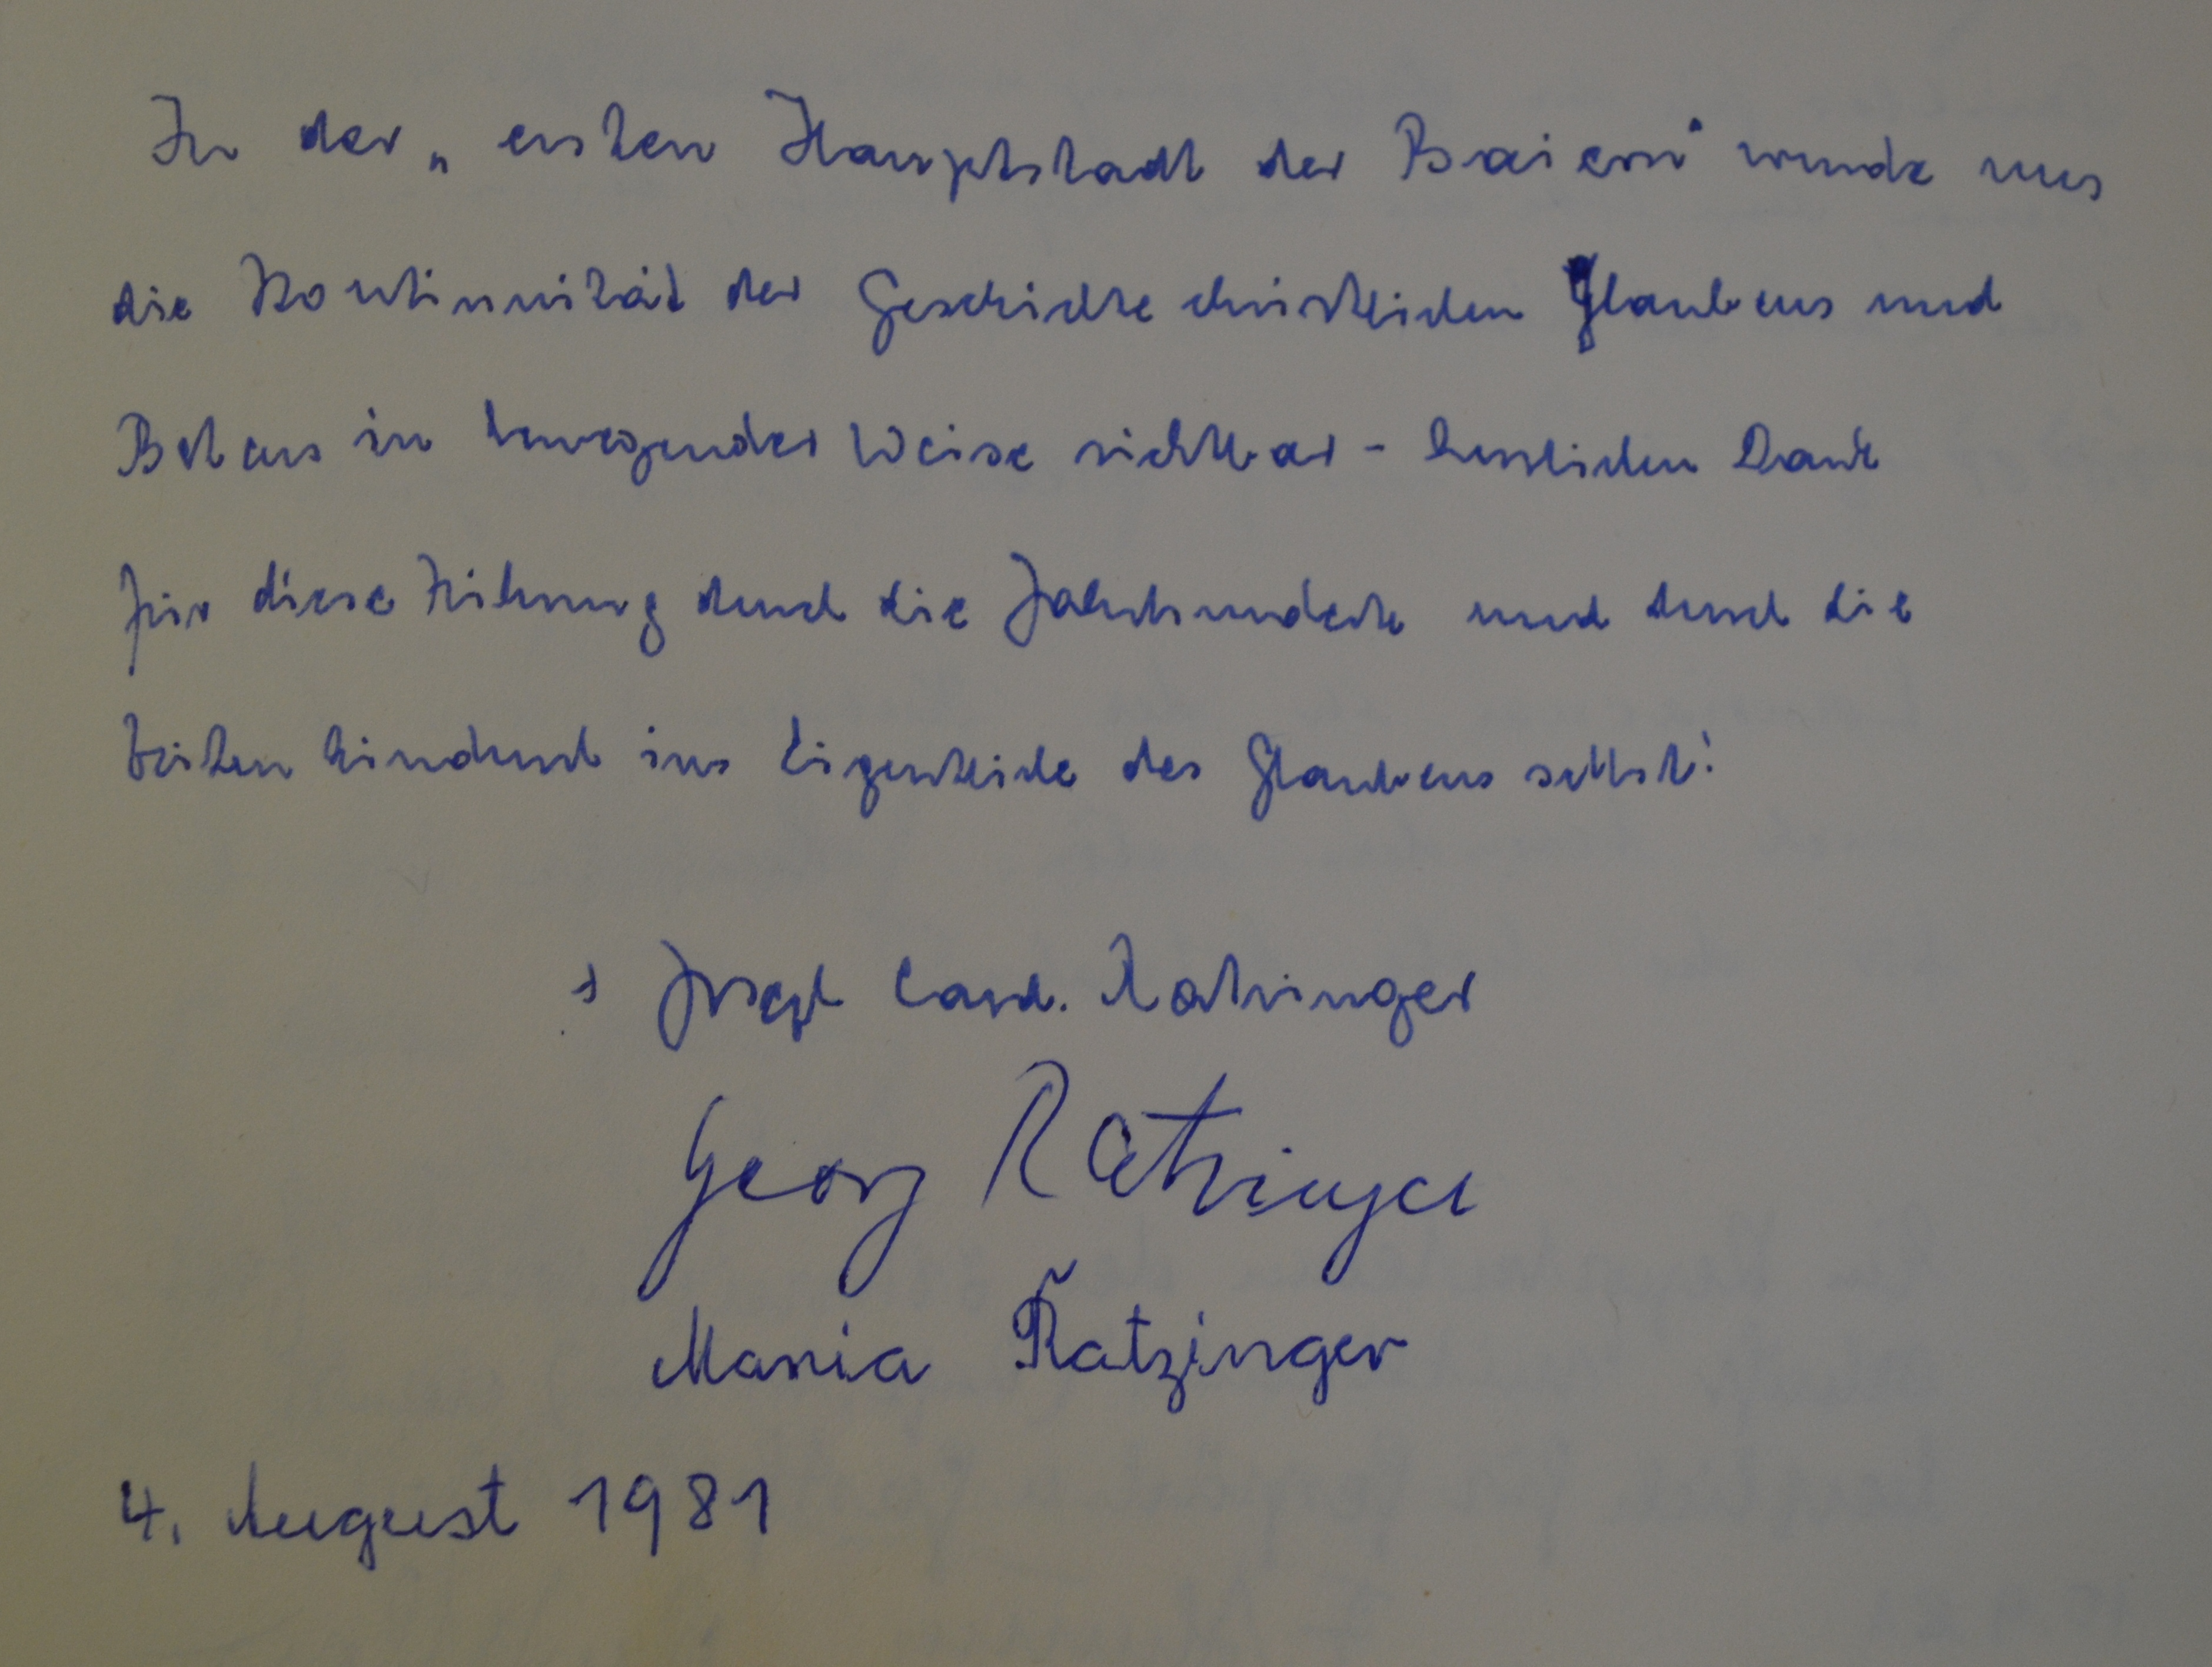 In der „ersten Hauptstadt der Baiern" wurde uns
die Kontinuität der Geschichte christlichen Glaubens und
Betens in bewegender Weise sichtbar - herzlichen Dank
für diese Führung durch die Jahrhunderte und durch die
Zeiten hindurch ins Eigentliche des Glaubens selbst!
+ Joseph Card. Ratzinger
Georg Ratzinger
Maria Ratzinger
4. August 1981